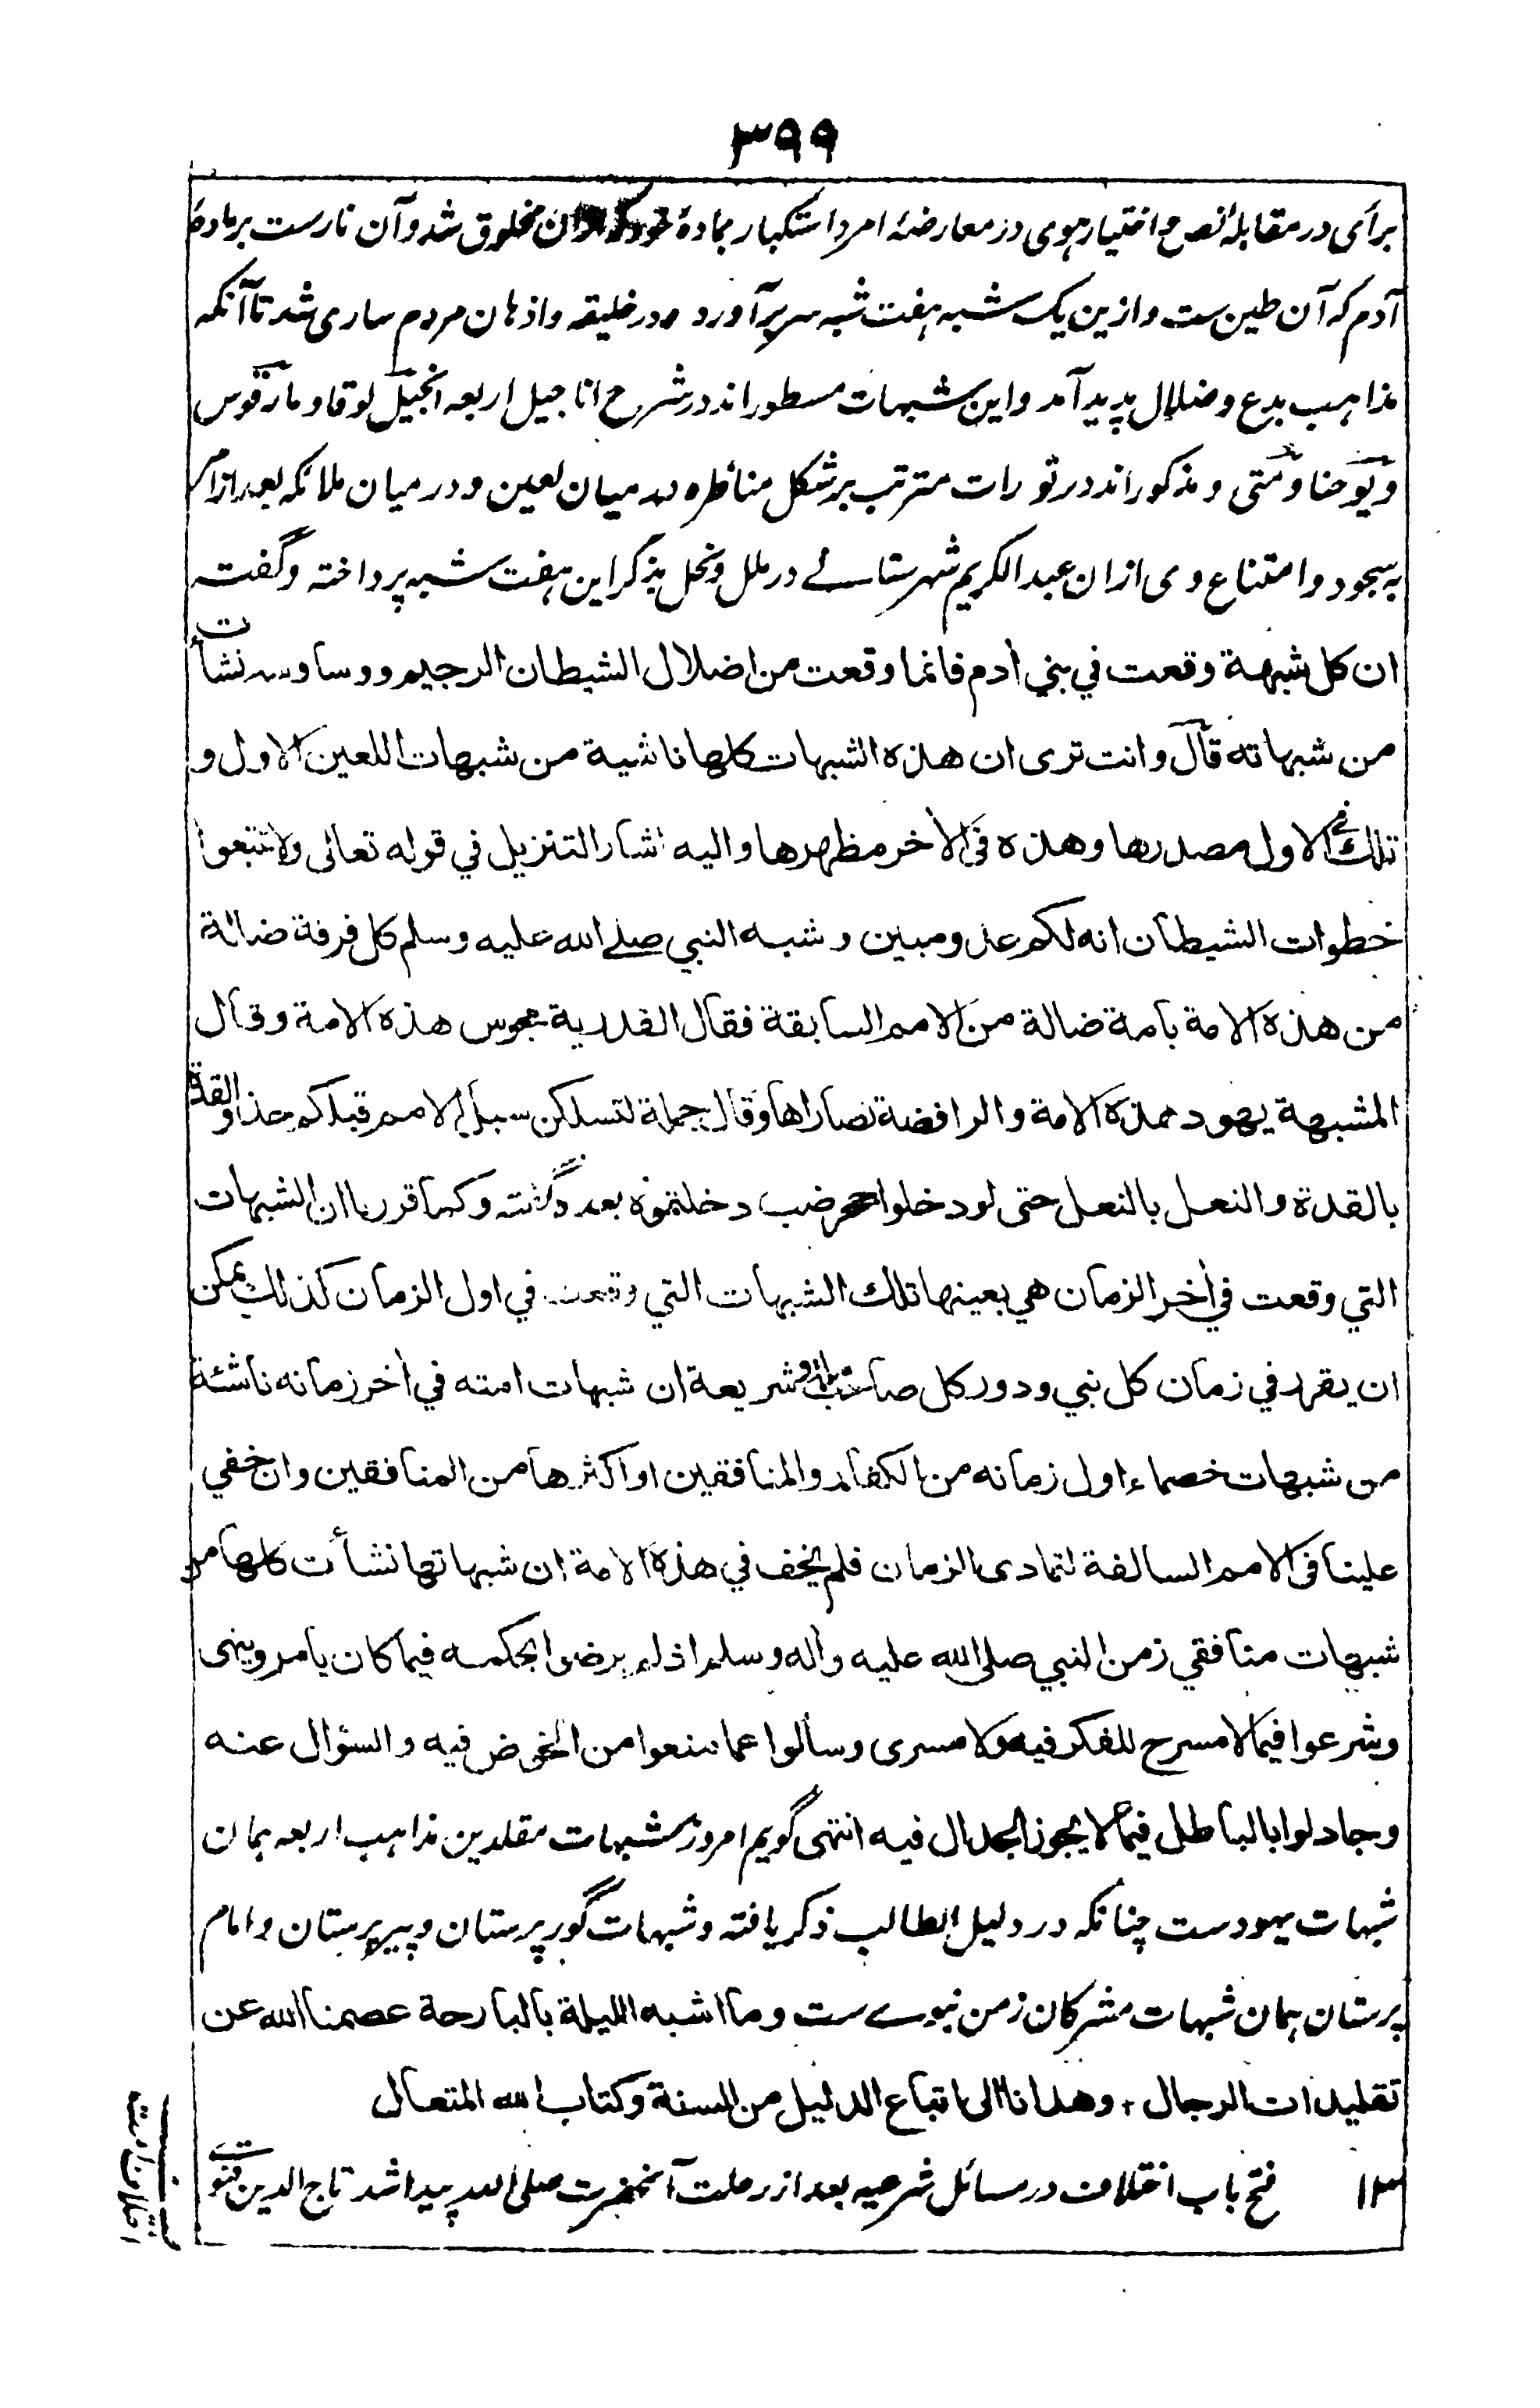 ۳۹۹
برأی در مقابلهٔ نص و اختیار هوی در معارضهٔ امر و استکبار بمادهٔ خود که ازان مخلوق شد و آن نارست بر مادهٔ
آدم که آن طین ست و ازین یک شبه هفت شبه سر برآورد و در خلیقه و اذهان مردم ساری شد تا آنکه
مذاهب بدع و ضلال پدید آمد و این شبهات مسطور اند در شرح اناجیل اربعه انجیل لوقا و مارقوس
و یوحنا و متی و مذکور اند در تورات مترتب بر شکل مناظره در میان لعین و در میان ملائکه بعد از امر
به سجود و امتناع وی ازان عبد الکریم شهرستانی در ملل و نحل بذکر این هفت شبه پرداخته و گفته
ان کل شبهة وقعت في بني أدم فانما وقعت من اضلال الشیطان الرجیم ووساوسه نشأت
من شبهاته قال وانت تری ان هذه الشبهات کلها ناشیة من شبهات اللعین الاول و
تلك في الاول مصدرها وهذه فی الأخر مظهرها والیه اشار التنزیل في قوله تعالی ولا تتبعوا
خطوات الشیطان انه لکم عدو مبین وشبه النبي صلے الله علیه وسلم کل فرقة ضالة
من هذه الامة بامة ضالة من الامم السابقة فقال القدریة مجوس هذه الامة وقال
المشبهة یهود هذه الامة والرافضة نصاراها وقال جملة لتسلکن سبل الامم قبلکم حذو القذة
بالقذة والنعل بالنعل حتی لو دخلوا جحر ضب دخلتموه بعده گفته وکما قررنا ان الشبهات
التي وقعت في أخر الزمان هي بعینها تلك الشبهات التي وقعت في اول الزمان کذلك یمکن
ان یقرر في زمان کل نبي ودور کل صاحب ملة وشریعة ان شبهات امته في أخر زمانه ناشئة
من شبهات خصماء اول زمانه من الکفار والمنافقین او اکثرها من المنافقین وان خفي
علینا فی الامم السالفة لتمادی الزمان فلم یخف في هذه الامة ان شبهاتها نشأت کلها من
شبهات منافقي زمن النبي صلی الله علیه وأله وسلم اذ لم یرضوا بحکمه فیما کان یامر وینهی
وشرعوا فیما لا مسرح للفکر فیه ولا مسری وسألوا عما منعوا من الخوض فیه والسؤال عنه
وجادلوا بالباطل فیما لا یجوز الجدال فیه انتهی گویم امروز شبهات مقلدین مذاهب اربعه همان
شبهات یهود ست چنانکه در دلیل الطالب ذکر یافته و شبهات گور پرستان و پیر پرستان و امام
پرستان همان شبهات مشرکان زمن نبوے ست وما اشبه اللیلة بالبارحة عصمنا الله عن
تقلیدات الرجال، وهدانا الی اتباع الدلیل من السنة وکتاب الله المتعال
۱۳ فتح باب اختلاف در مسائل شرعیه بعد از رحلت آنحضرت صلی الله پیدا شد تاج الدین